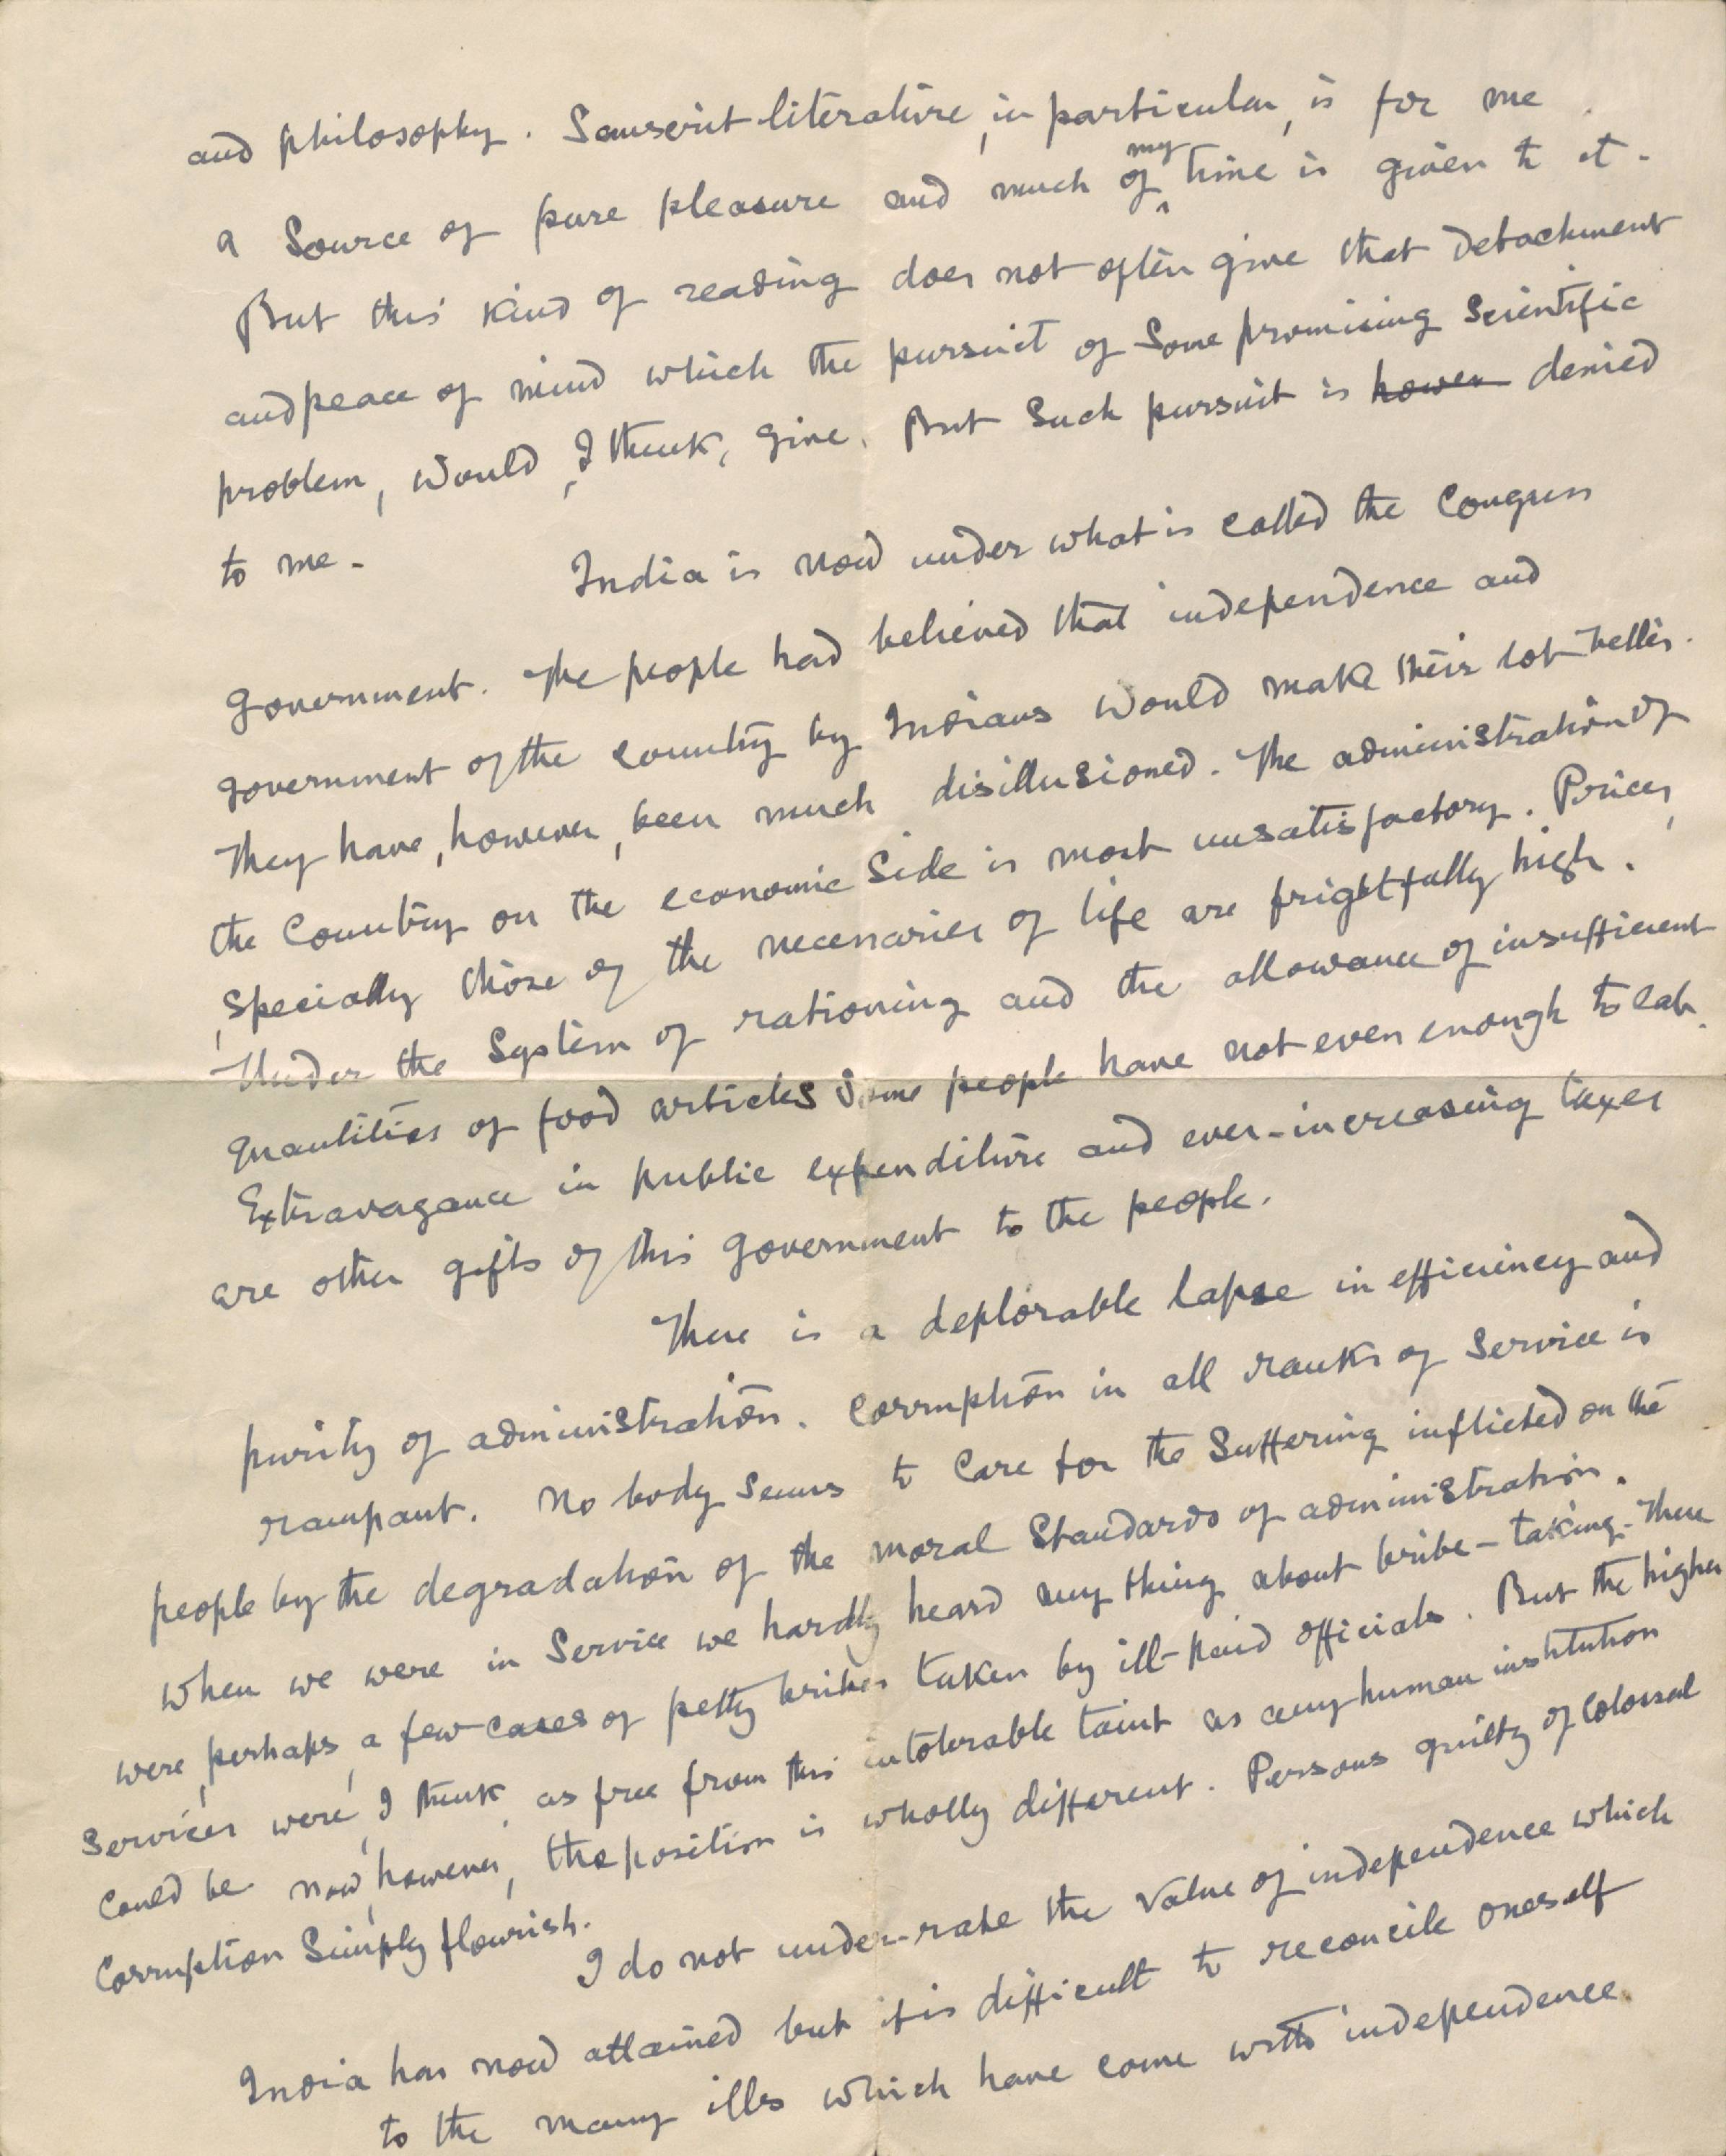 and philosophy. Sanscrit literature, in particular, is for me
a source of pure pleasure and much of my time is given to it.
But this kind of reading does not often give that detachment
and peace of mind which the pursuit of some promising scientific
problem, would, I think, give. But such pursuit is hower denied
to me.
India is now under what is called the Congress
Government. The people had believed that independence and
government of the country by Indians would make their lot better.
They have, however, been much disillusioned. The administration of
the country on the economic side is most unsatisfactory. Prices,
specially those of the necessaries of life are frightfully high.
Under the system of rationing and the allowance of insufficient
quantities of food articles some people have not even enough to eat.
Extravagance in public expenditure and ever-increasing taxes
are other gifts of this Government to the people.
There is a deplorable lapse in efficiency and
purity of administration. Corruption in all ranks of service is
rampant. No body seems to care for the suffering inflicted on the
people by the degradation of the moral standards of administration.
When we were in service we hardly heard any thing about bribe-taking. There
were, perhaps, a few cases of petty bribes taken by ill-paid officials. But the higher
services were, I think, as free from this intolerable taint as any human institution
could be. Now, however, the position is wholly different. Persons guilty of colossal
corruption simply flourish.
I do not under-rate the value of independence which
India has now attained but it is difficult to reconcile oneself
to the many ills which have come with independence.